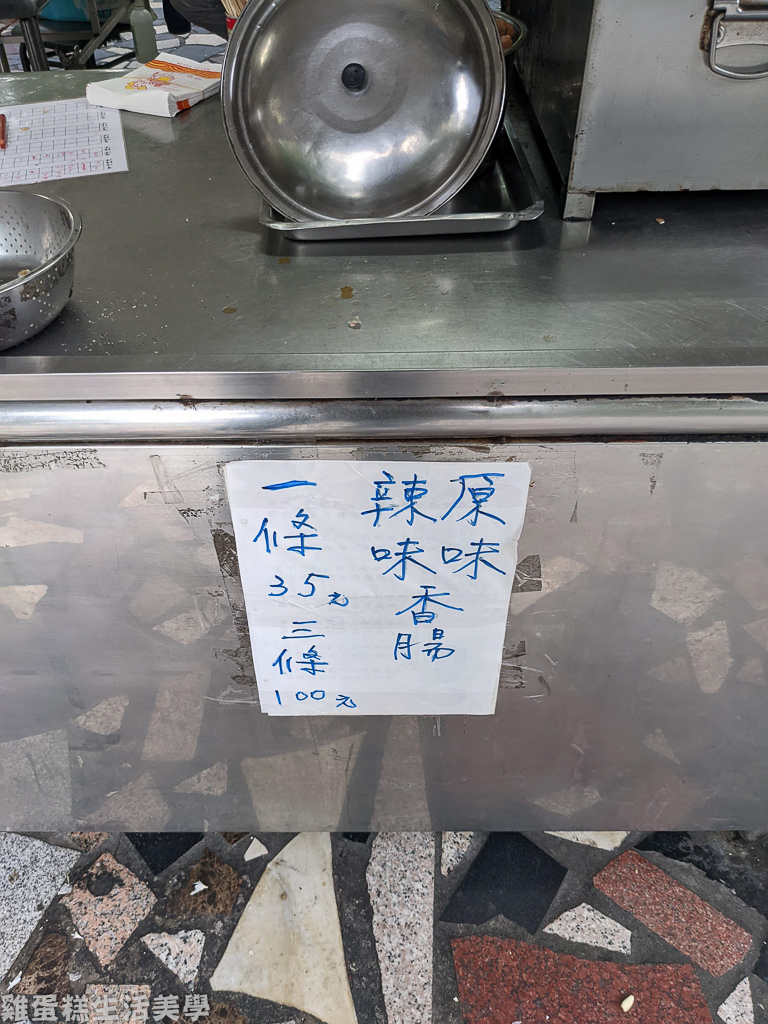 原味
辣味
香腸
一條
35元
三條
100元
雞蛋糕生活美學